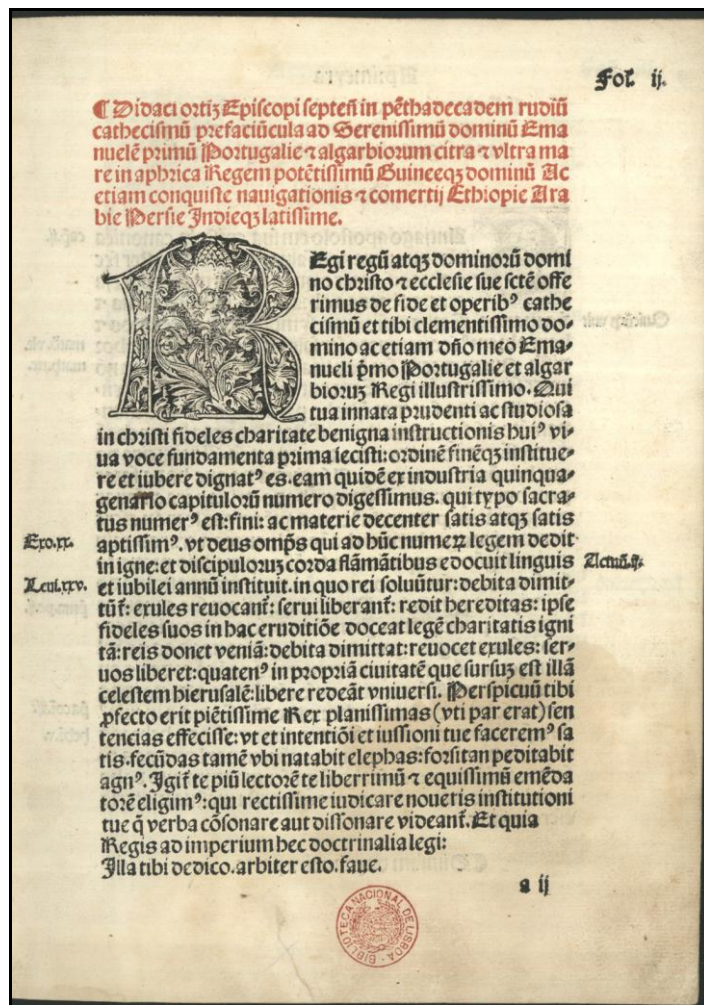 Fol. ij.
¶ Didaci ortiz Episcopi septeñ in pẽthadecadem rudiũ
cathecismũ prefaciũcula ad Serenissimũ dominũ Ema
nuelẽ primũ Portugalie ⁊ algarbiorum citra ⁊ vltra ma
re in aphrica Regem potẽtissimũ Guineeqꝫ dominũ Ac
etiam conquiste nauigationis ⁊ comertij Ethiopie Ara
bie Persie Indieqꝫ latissime.
REgi regũ atqꝫ dominorũ domi
no christo ⁊ ecclesie sue sctẽ offe
rimus de fide et operibꝰ cathe
cismũ et tibi clementissimo do-
mino ac etiam dño meo Ema-
nueli p̃mo Portugalie et algar
bioruz Regi illustrissimo. Qui
tua innata prudenti ac studiosa
in christi fideles charitate benigna instructionis huiꝰ vi-
ua voce fundamenta prima iecisti: ordinẽ finẽqꝫ institue-
re et iubere dignatꝰ es. eam quidẽ ex industria quinqua-
genario capitulorũ numero digessimus. qui typo sacra-
tus numerꝰ est: fini: ac materie decenter satis atqꝫ satis
Exo.xx.
aptissimꝰ. vt deus omp̃s qui ad hũc numeꝝ legem dedit
in igne: et discipuloruz corda flãmãtibus edocuit linguis
Actuũ.ij.
Leui.xxv.
et iubilei annũ instituit. in quo rei soluũtur: debita dimit-
tũt̃: exules reuocant̃: serui liberant̃: redit hereditas: ipse
fideles suos in hac eruditiõe doceat legẽ charitatis igni
tã: reis donet veniã: debita dimittat: reuocet exules: ser-
uos liberet: quatenꝰ in propriã ciuitatẽ que sursuz est illã
celestem hierusalẽ: libere redeãt vniuersi. Perspicuũ tibi
ꝓfecto erit piẽtissime Rex planissimas (vti par erat) sen
tencias effecisse: vt et intentiõi et iussioni tue faceremꝰ sa
tis. fecũdas tamẽ vbi natabit elephas: forsitan peditabit
agnꝰ. Igit̃ te piũ lectorẽ te liberrimũ ⁊ equissimũ emẽda
torẽ eligimꝰ: qui rectissime iudicare noueris institutioni
tue q̃ verba cõsonare aut dissonare videant̃. Et quia
Regis ad imperium hec doctrinalia legi:
Illa tibi dedico. arbiter esto. faue.
a ij
BIBLIOTECA NACIONAL DE LISBOA